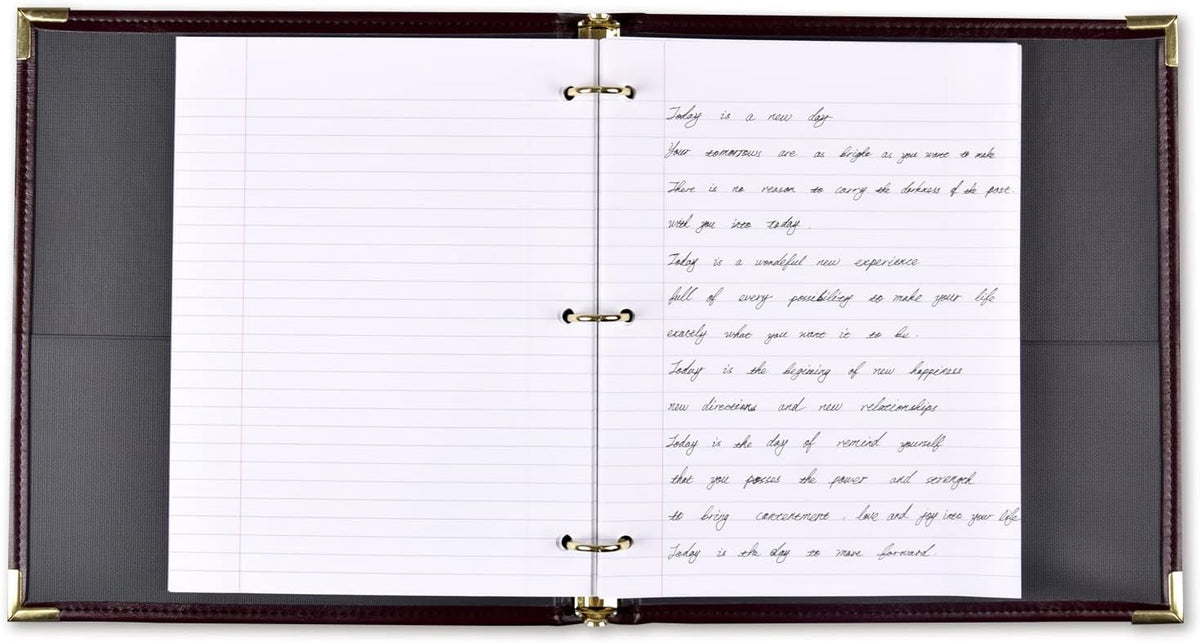 Today is a new day
Your tomorrows are as bright as you want to make
There is no reason to carry the darkness of the past.
with you into today.
Today is a wondeful new experience
full of every possibility to make your life
exactly what you want it to be.
Today is the begining of new happiness
new directions and new relationships
Today is the day of remind yourself
that you posses the power and strength
to bring contentment, love and joy into your life
Today is the day to move forward.